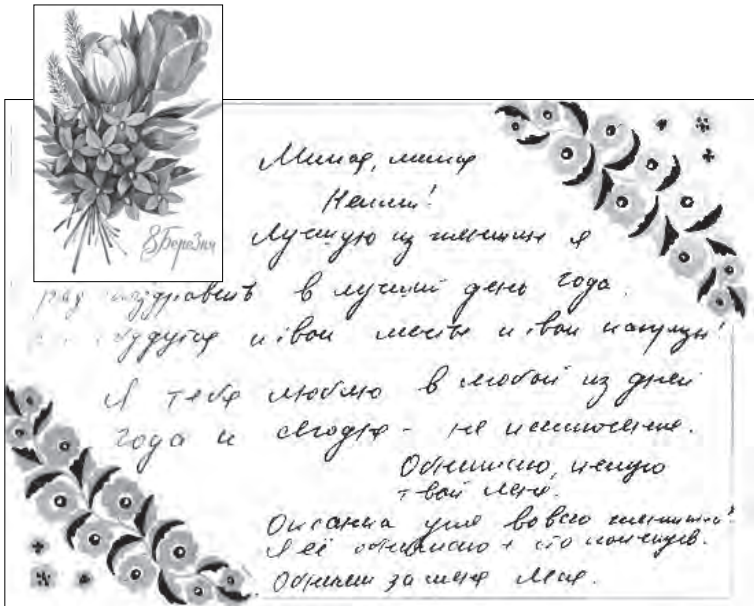 8 Березня
Милая, милая
Нелли!
Лучшую из женщин я
рад поздравить в лучший день года.
сбудутся и твои мечты и твои
Я тебя люблю в любой из дней
года и сегодня - не исключение.
Обнимаю, целую
твой Лёня.
Оксанка уже вовсю женщина!
Я её обнимаю + сто поцелуев.
Обними за меня